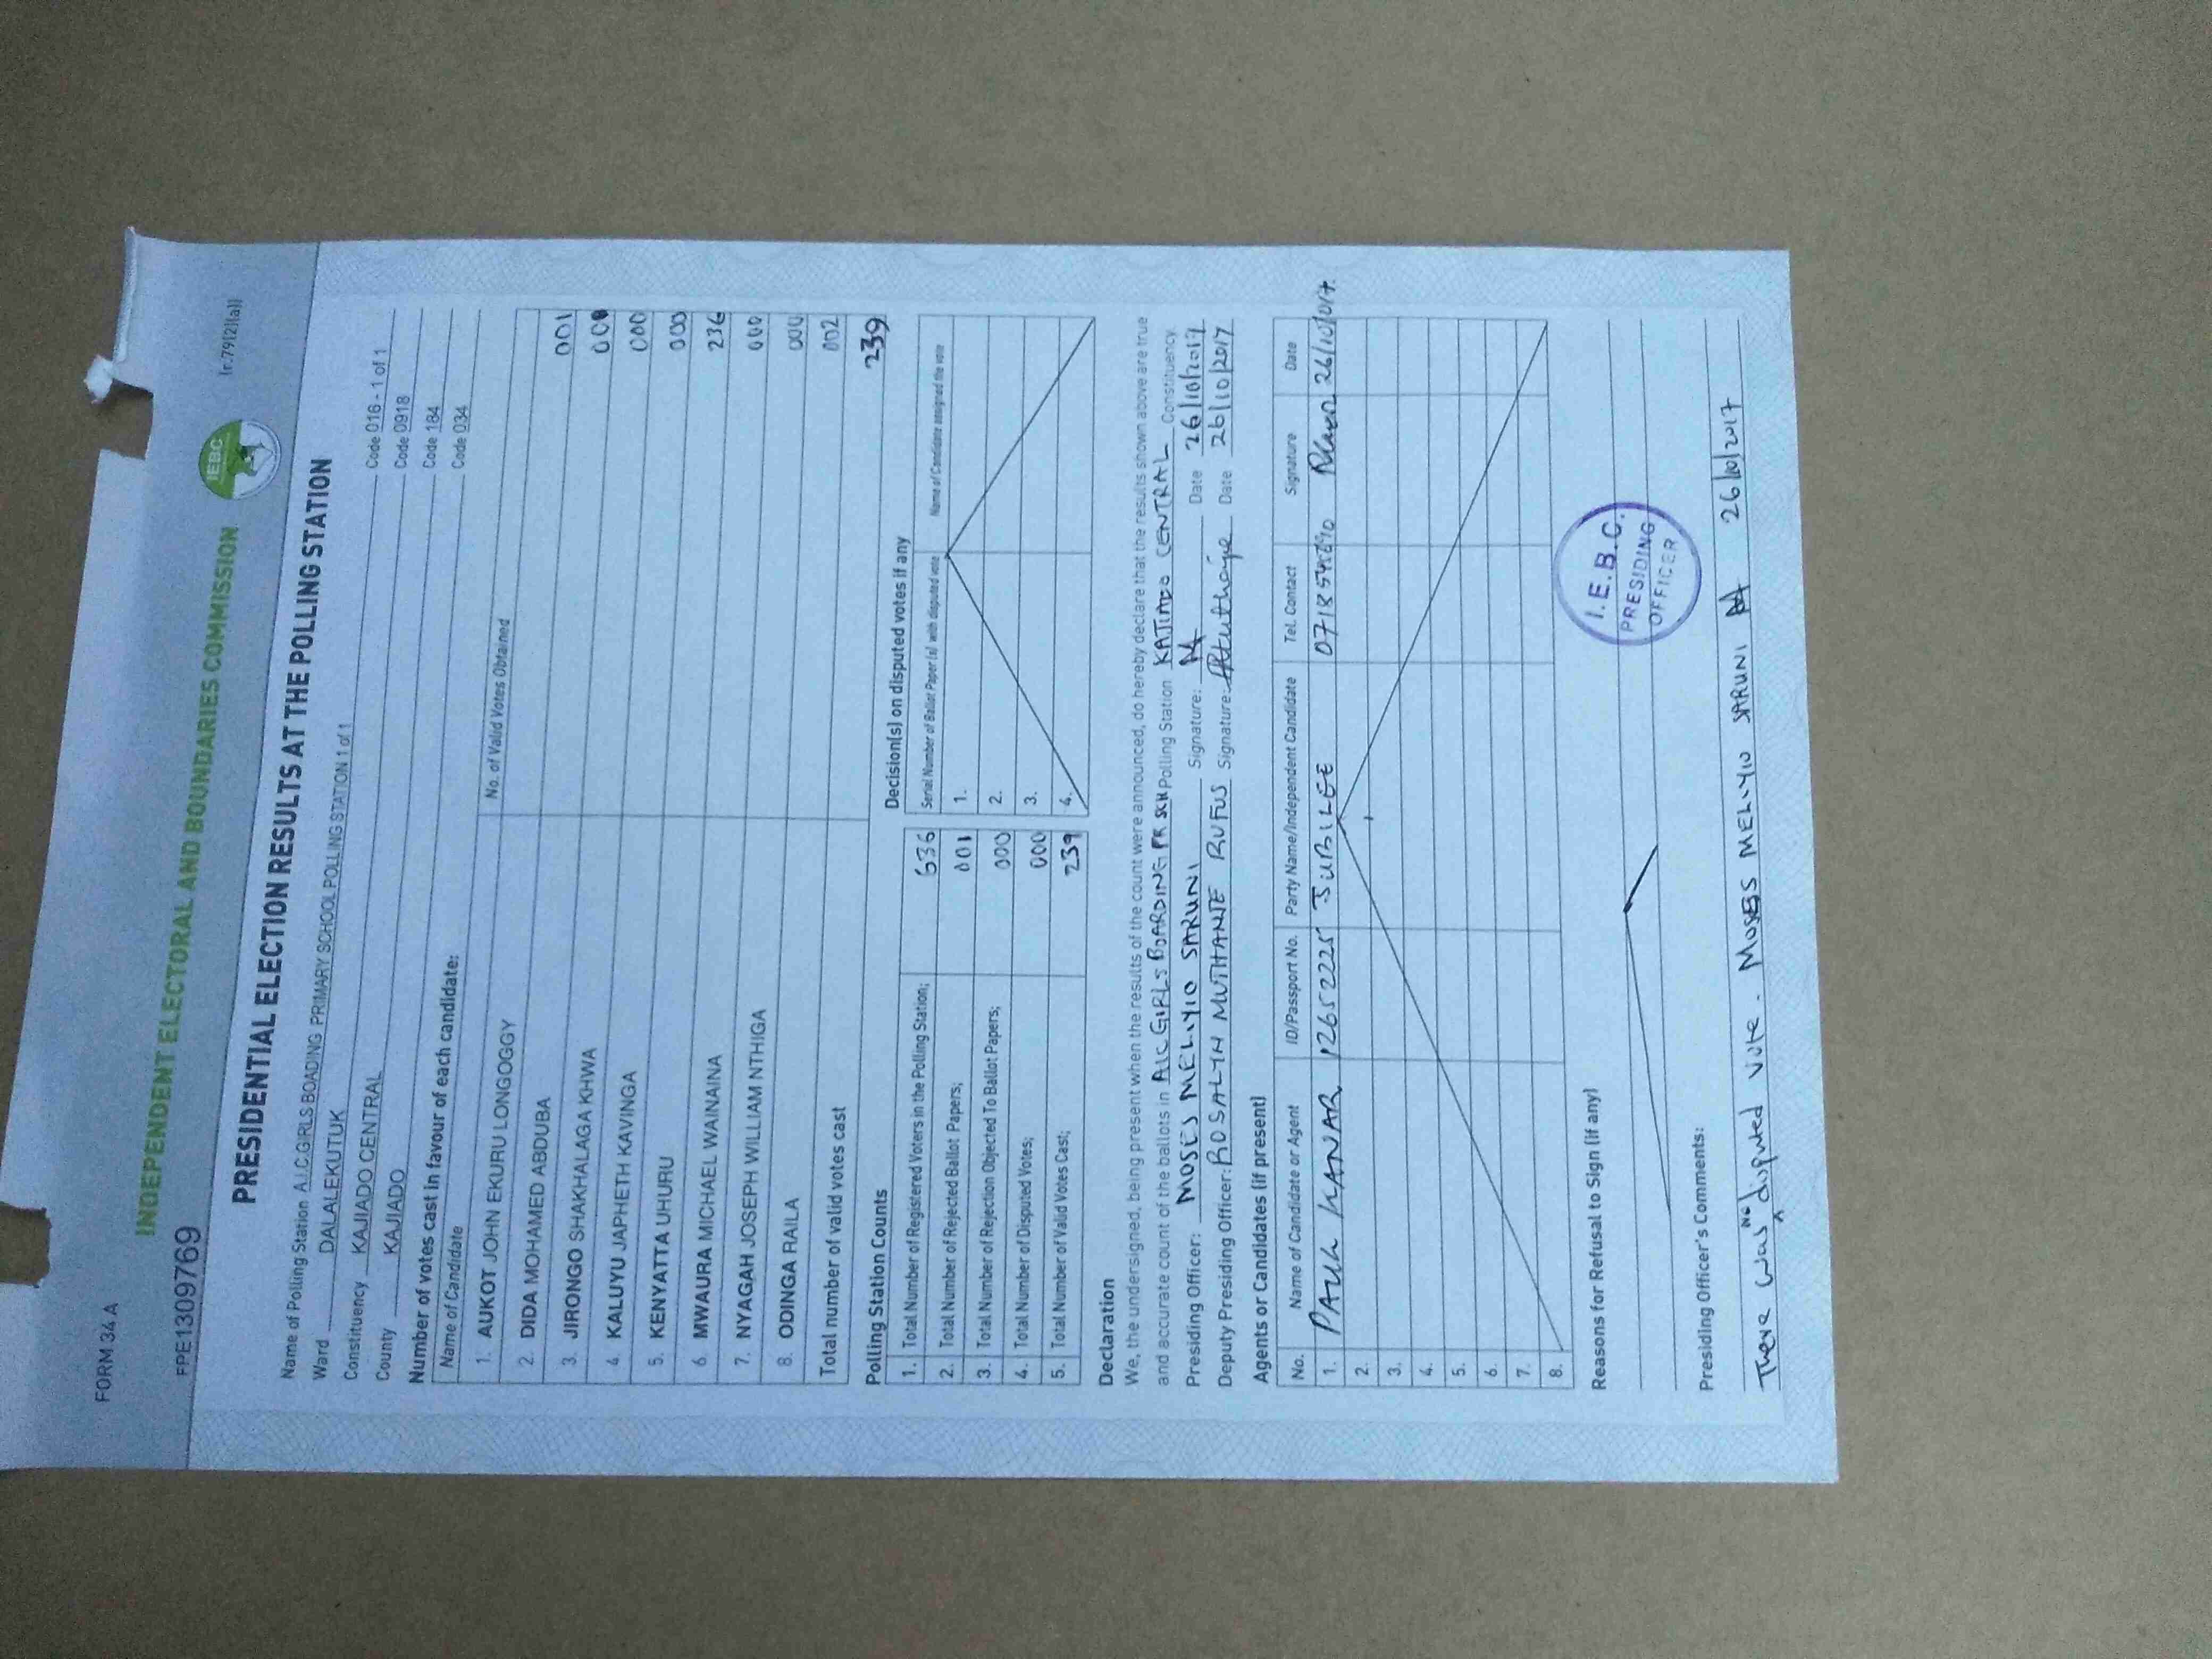 FORM 34 A
(r.79(2)(a))
INDEPENDENT ELECTORAL AND BOUNDARIES COMMISSION
IEBC
EPE1309769
PRESIDENTIAL ELECTION RESULTS AT THE POLLING STATION
Name of Polling Station A.I.C.GIRLS BOADING PRIMARY SCHOOL POLLING STATION 1 of 1 Code 016 - 1 of 1
Ward DALALEKUTUK Code 0918
Constituency KAJIADO CENTRAL Code 184
County KAJIADO Code 034
Number of votes cast in favour of each candidate:
Name of Candidate No. of Valid Votes Obtained
1. AUKOT JOHN EKURU LONGOGGY 001
2. DIDA MOHAMED ABDUBA 000
3. JIRONGO SHAKHALAGA KHWA 000
4. KALUYU JAPHETH KAVINGA 000
5. KENYATTA UHURU 236
6. MWAURA MICHAEL WAINAINA 000
7. NYAGAH JOSEPH WILLIAM NTHIGA 000
8. ODINGA RAILA 002
Total number of valid votes cast 239
Polling Station Counts
1. Total Number of Registered Voters in the Polling Station; 636
2. Total Number of Rejected Ballot Papers; 001
3. Total Number of Rejection Objected To Ballot Papers; 000
4. Total Number of Disputed Votes; 000
5. Total Number of Valid Votes Cast; 239
Decision(s) on disputed votes if any
Serial Number of Ballot Paper (s) with disputed vote Name of Candidate assigned the vote
1.
2.
3.
4.
Declaration
We, the undersigned, being present when the results of the count were announced, do hereby declare that the results shown above are true
and accurate count of the ballots in AIC GIRLS BOARDING PR SCH Polling Station KAJIADO CENTRAL Constituency
Presiding Officer: MOSES MELIYIO SARUNI Signature: Date 26/10/2017
Deputy Presiding Officer: ROSALYN MUTHANJE RUFUS Signature: Date 26/10/2017
Agents or Candidates (if present)
No. Name of Candidate or Agent ID/Passport No. Party Name/Independent Candidate Tel. Contact Signature Date
1. PAUL KANAR 12652225 JUBILEE 26/10/017
2.
3.
4.
5.
6.
7.
8.
Reasons for Refusal to Sign (if any)
I.E.B.C.
PRESIDING
OFFICER
Presiding Officer's Comments:
There was No disputed vote. MOSES MELIYIO SARUNI 26/10/2017